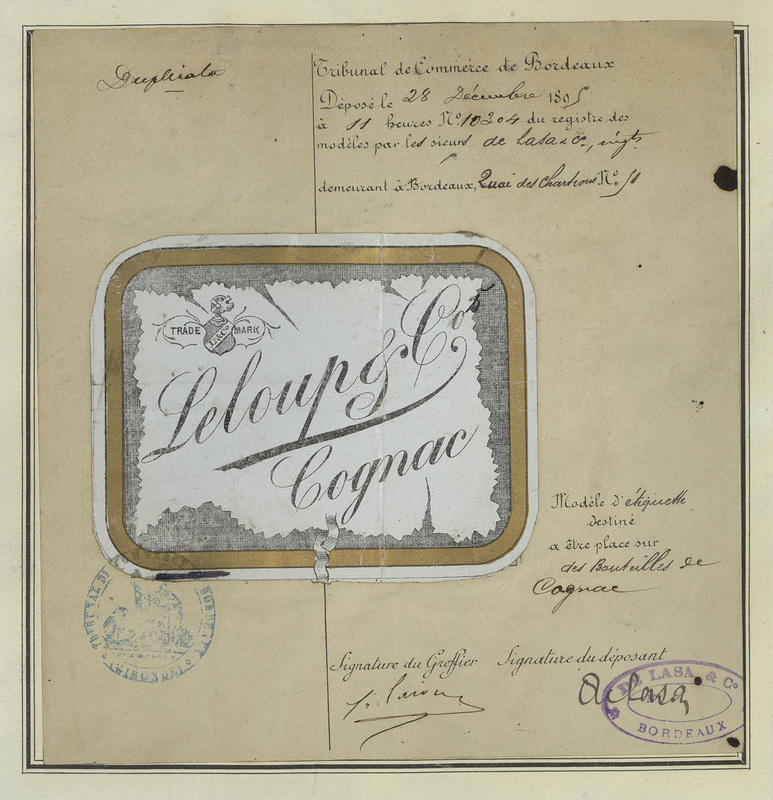 Duplicata
Tribunal de Commerce de Bordeaux
Déposé le 28 Décembre 1895
à 11 heures No. 10304 du registre des
modèles par les sieurs de Lasa & Co., négts
demeurant à Bordeaux, Quai des Chartrons No. 51
TRADE MARK
L & Co
Leloup & Co
Cognac
Modèle d'étiquette
destiné
a être place sur
des Bouteilles de
Cognac
TRIBUNAL DE COMMERCE BORDEAUX
(GIRONDE)
Signature du Greffier Signature du déposant
de Lasa
DE LASA & Co
BORDEAUX